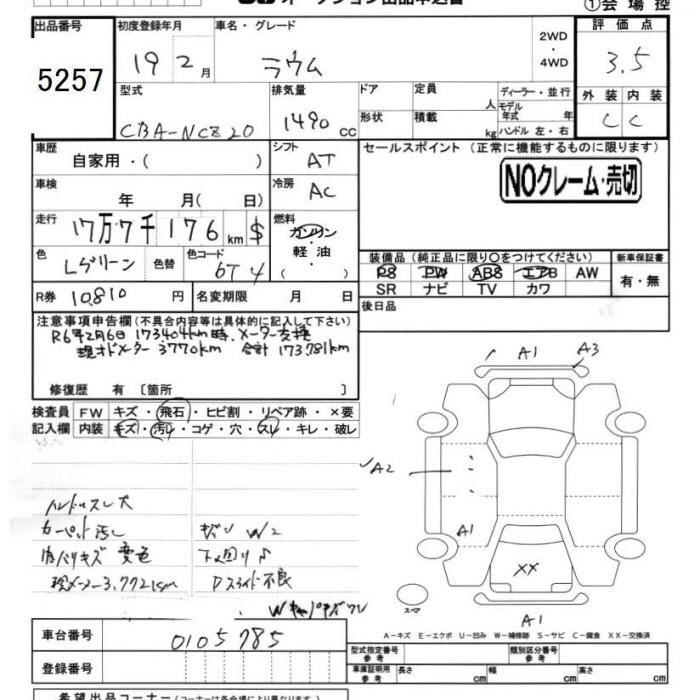 オークション出品申込書
①会場控
出品番号 5257
初度登録年月 19 2月
車名・グレード ラウム
2WD・4WD
評価点 3.5
型式 CBA-NCZ20
排気量 1490 cc
ドア
定員 人
形状
積載 kg
ディーラー・並行
モデル年式 年
ハンドル 左・右
外装 内装
C C
車歴 自家用・( )
シフト AT
セールスポイント(正常に機能するものに限ります)
NOクレーム・売切
車検 年 月(日)
冷房 AC
走行 17万7千176 km $
燃料 ガソリン 軽油・( )
色 Lグリーン
色替
色コード 6T4
装備品(純正品に限り○をつけてください)
PS PW ABS エアB AW
SR ナビ TV カワ
新車保証書 有・無
R券 10,810円
名変期限 月 日
後日品
注意事項申告欄(不具合内容等は具体的に記入して下さい)
R6年2月6日 173,404km時、メーター交換
現オドメーター 3770km 合計 173,781km
修復歴 有〔箇所 〕
検査員記入欄
FW キズ・飛石・ヒビ割・リペア跡・×要
内装 キズ・汚れ・コゲ・穴・スレ・キレ・破レ
A1 A3
A2
A1
XX
A1
スペア
ハンドルスレ大
カーペット汚レ
内バリキズ 変色
現メーター3,772km
W2
下回り
Pスライド不良
車台番号 0105785
登録番号
A-キズ E-エクボ U-凹み W-補修跡 S-サビ C-腐食 XX-交換済
型式指定番号 参考
類別区分番号 参考
車庫証明用 参考
長さ cm 幅 cm 高さ cm
希望出品コーナー(コーナーは各会場により異なります)